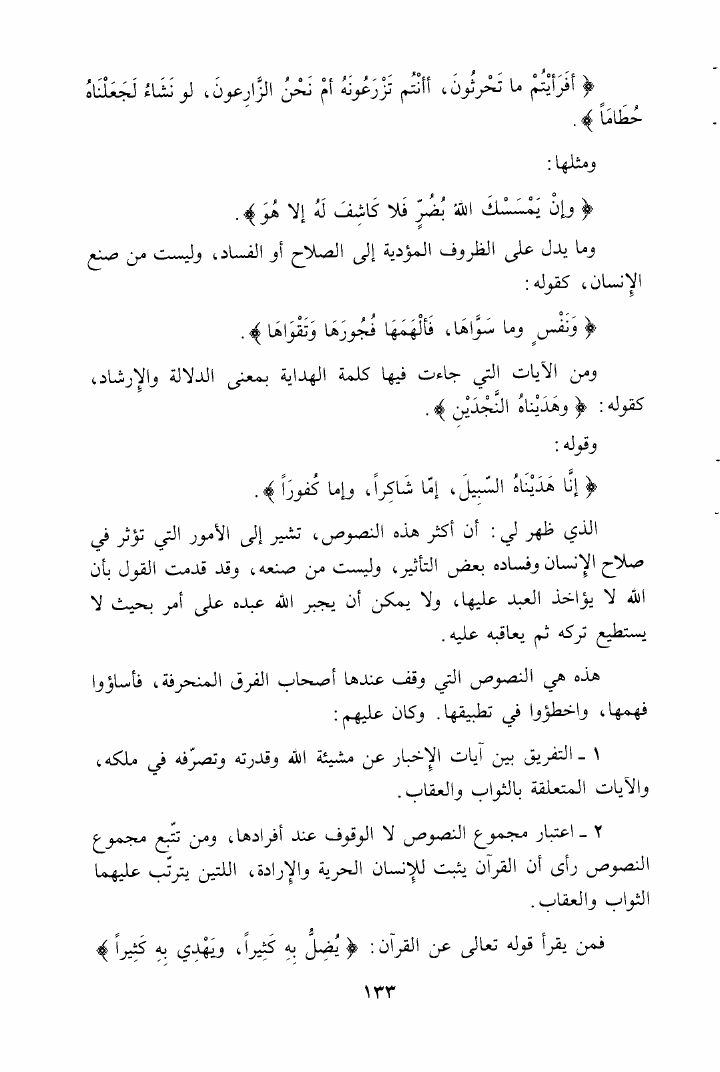 ﴿ أفَرَأيْتُمْ ما تَحْرثُونَ، أأنْتُم تَزْرَعُونَهُ أمْ نَحْنُ الزَّارِعونَ، لو نَشَاءُ لَجَعَلْنَاهُ
حُطَامَاً ﴾.
ومثلها:
﴿ وإنْ يَمْسَسْكَ اللهُ بُضُرٍّ فَلا كَاشِفَ لَهُ إلا هُوَ ﴾.
وما يدل على الظروف المؤدية إلى الصلاح أو الفساد، وليست من صنع
الإنسان، كقوله:
﴿ وَنَفْسٍ وما سَوَّاهَا، فَألْهَمَهَا فُجُورَهَا وَتَقْوَاهَا ﴾.
ومن الآيات التي جاءت فيها كلمة الهداية بمعنى الدلالة والإرشاد،
كقوله: ﴿ وهَدَيْناهُ النَّجْدَيْنِ ﴾.
وقوله:
﴿ إنَّا هَدَيْنَاهُ السّبِيلَ، إمّا شَاكِراً، وإما كُفورَاً ﴾.
الذي ظهر لي: أن أكثر هذه النصوص، تشير إلى الأمور التي تؤثر في
صلاح الإنسان وفساده بعض التأثير، وليست من صنعه، وقد قدمت القول بأن
الله لا يؤاخذ العبد عليها، ولا يمكن أن يجبر الله عبده على أمر بحيث لا
يستطيع تركه ثم يعاقبه عليه.
هذه هي النصوص التي وقف عندها أصحاب الفرق المنحرفة، فأساؤوا
فهمها، واخطؤوا في تطبيقها. وكان عليهم:
١ ـ التفريق بين آيات الإخبار عن مشيئة الله وقدرته وتصرّفه في ملكه،
والآيات المتعلقة بالثواب والعقاب.
٢ ـ اعتبار مجموع النصوص لا الوقوف عند أفرادها، ومن تتّبع مجموع
النصوص رأى أن القرآن يثبت للإنسان الحرية والإرادة، اللتين يترتّب عليهما
الثواب والعقاب.
فمن يقرأ قوله تعالى عن القرآن: ﴿ يُضِلُّ بِهِ كَثِيراً، ويَهْدِي بِهِ كَثِيراً ﴾
١٣٣